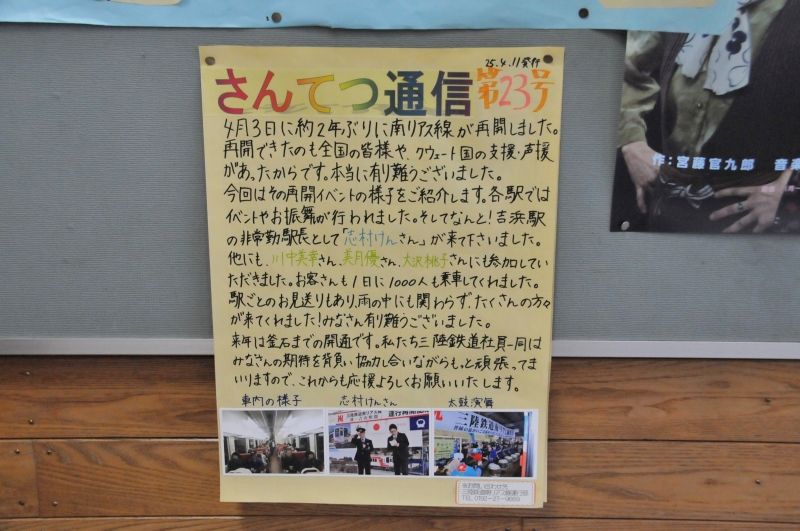 25.4.11発行
さんてつ通信 第23号
4月3日に約2年ぶりに南リアス線が再開しました。
再開できたのも全国の皆様や、クウェート国の支援・声援
があったからです。本当に有り難うございました。
今回はその再開イベントの様子をご紹介します。各駅では
イベントやお振舞が行われました。そしてなんと！吉浜駅
の非常勤駅長として「志村けんさん」が来て下さいました。
他にも、川中美幸さん、美月優さん、大沢桃子さんにも参加してい
ただきました。お客さんも1日に1000人も乗車してくれました。
駅ごとのお見送りもあり、雨の中にも関わらず、たくさんの方々
が来てくれました！みなさん有り難うございました。
来年は釜石までの開通です。私たち三陸鉄道社員一同は
みなさんの期待を背負い協力し合いながらもっと頑張ってま
いりますので、これからも応援よろしくお願いいたします。
車内の様子 志村けんさん 太鼓演舞
祝
三陸鉄道南リアス線
運行再開
三陸鉄道南リアス
作：宮藤官九郎 音楽